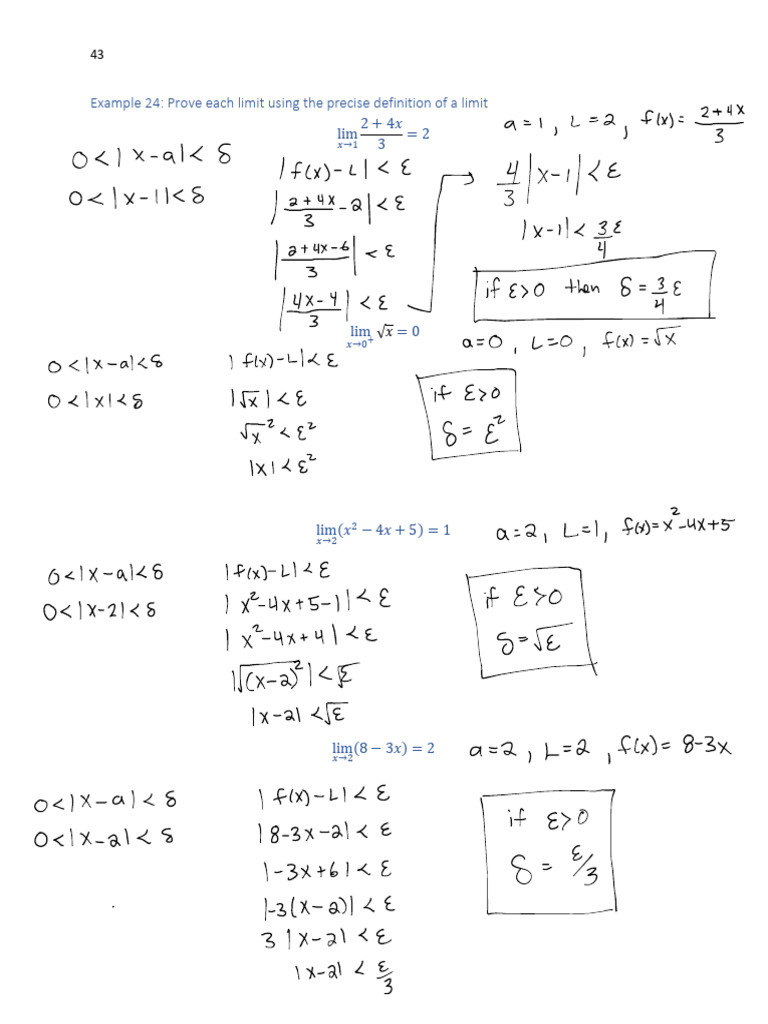 43
Example 24: Prove each limit using the precise definition of a limit
lim x→1 (2 + 4x)/3 = 2
a=1, L=2, f(x)= (2+4x)/3
0<|x-a|<δ
0<|x-1|<δ
|f(x)-L|<ε
|(2+4x)/3 - 2|<ε
|(2+4x-6)/3|<ε
|(4x-4)/3|<ε
→ 4/3 |x-1|<ε
|x-1|<3ε/4
if ε>0 then δ=3/4 ε
lim x→0⁺ √x = 0
a=0, L=0, f(x)=√x
0<|x-a|<δ
0<|x|<δ
|f(x)-L|<ε
|√x|<ε
√x²<ε²
|x|<ε²
if ε>0
δ=ε²
lim x→2 (x² − 4x + 5) = 1
a=2, L=1, f(x)=x²-4x+5
0<|x-a|<δ
0<|x-2|<δ
|f(x)-L|<ε
|x²-4x+5-1|<ε
|x²-4x+4|<ε
|√(x-2)²|<√ε
|x-2|<√ε
if ε>0
δ=√ε
lim x→2 (8 − 3x) = 2
a=2, L=2, f(x)=8-3x
0<|x-a|<δ
0<|x-2|<δ
|f(x)-L|<ε
|8-3x-2|<ε
|-3x+6|<ε
|-3(x-2)|<ε
3|x-2|<ε
|x-2|<ε/3
if ε>0
δ=ε/3